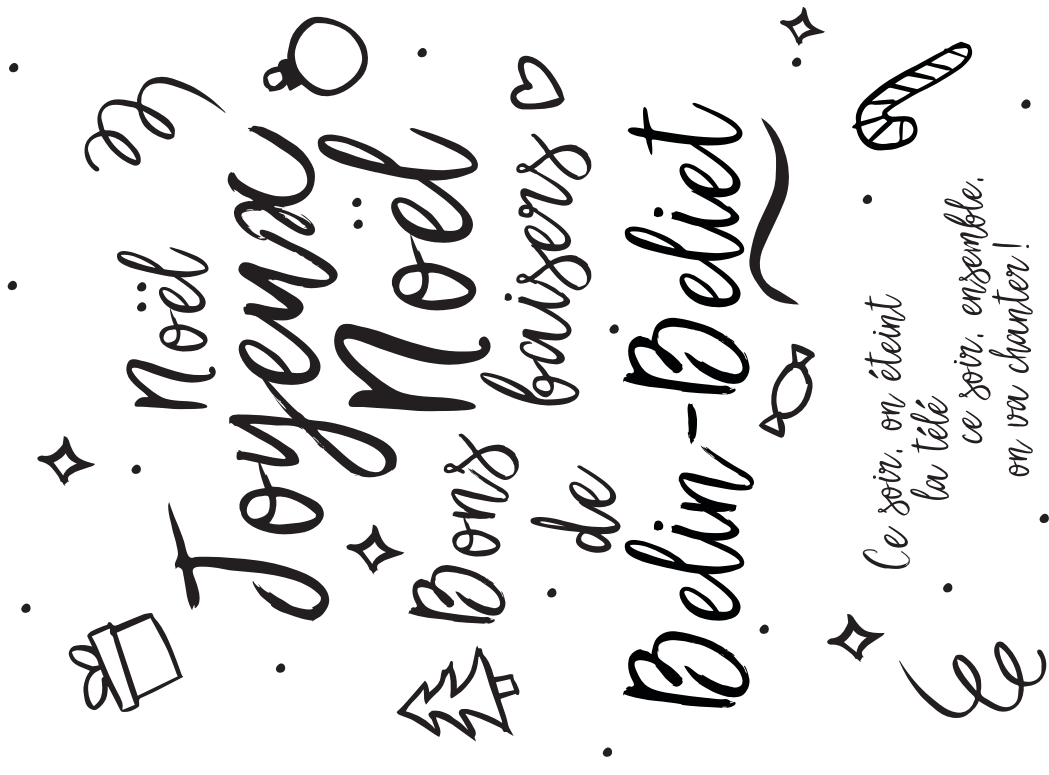 noël
Joyeux
Noël
Bons baisers
de
Belin-Beliet
Ce soir, on éteint
la télé
ce soir, ensemble,
on va chanter !